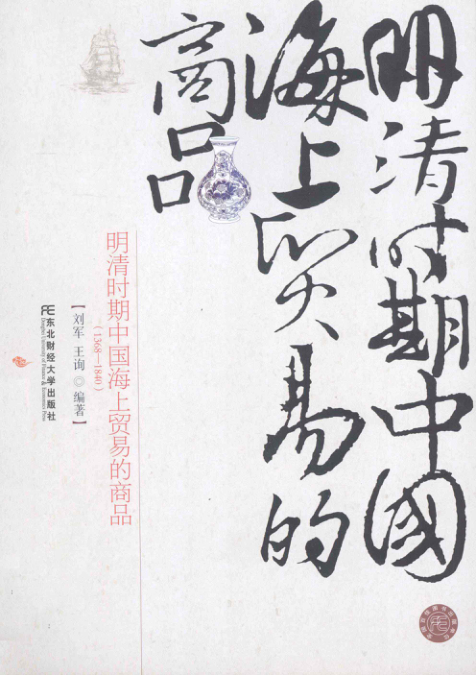 明清时期中國
海上贸易的
商品
明清时期中国海上贸易的商品
（1368—1840）
【刘军 王询◎编著】
东北财经大学出版社
Dongbei University of Finance & Economics Press